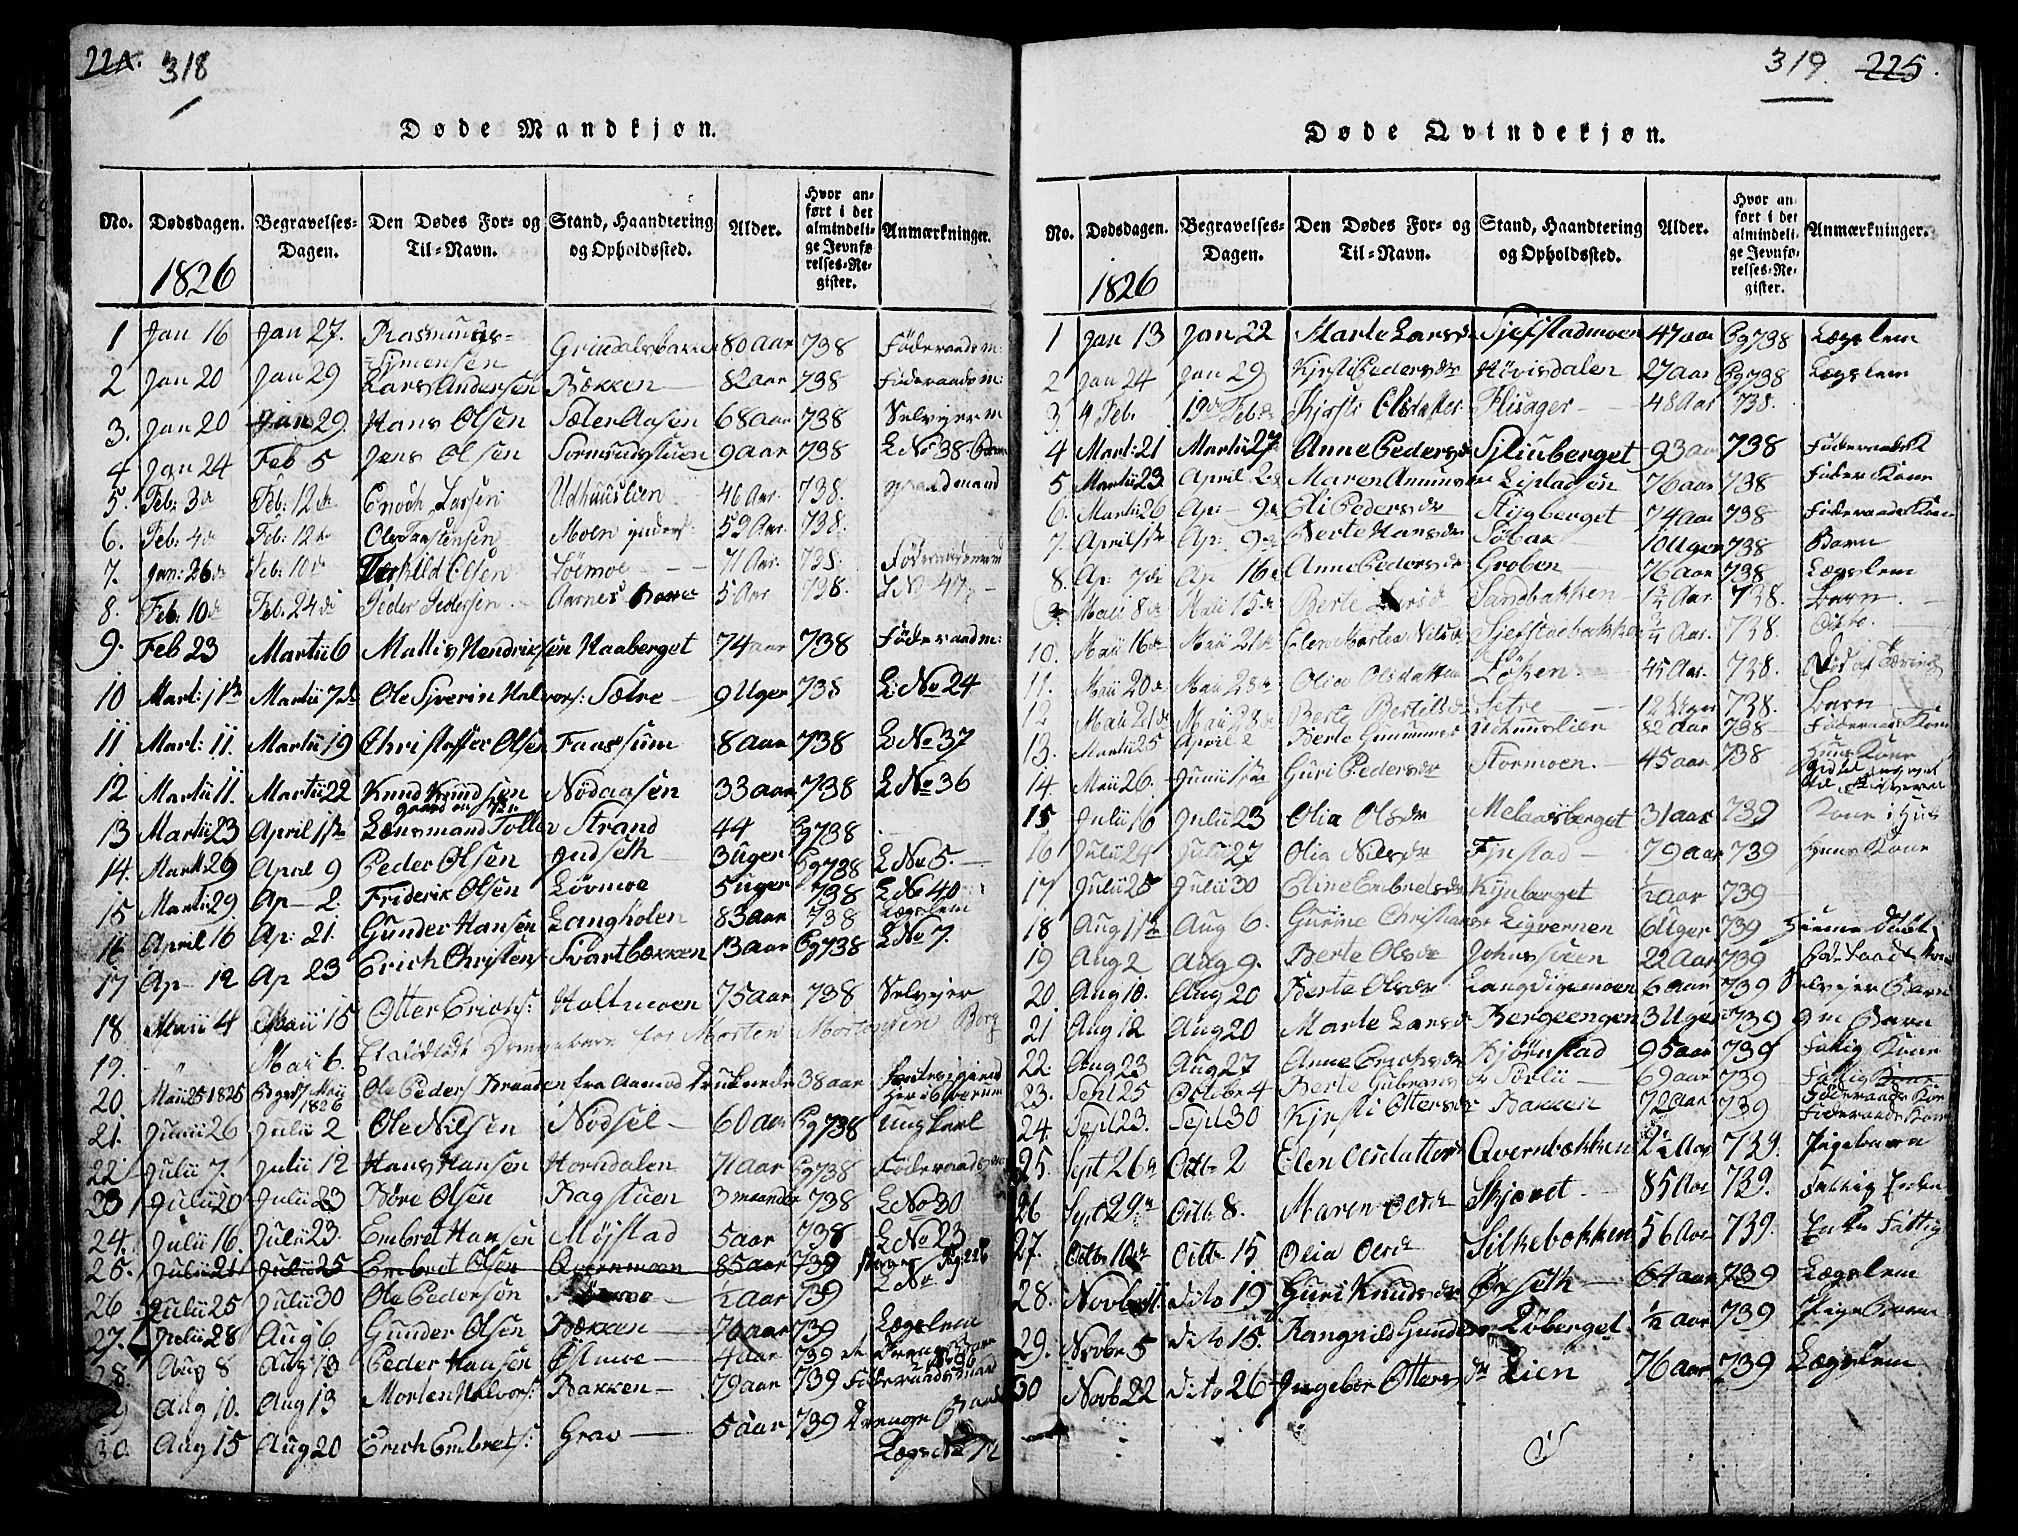 224. 318
Døde Mandkjøn.
No. Dødsdagen. Begravelses-Dagen. Den Dødes For- og Til-Navn. Stand, Haandtering og Opholdssted. Alder. Hvor anført i det almindelige Jevnførelses-Register. Anmærkninger.
1826
1 Jan 16 Jan 27. Rasmus Simensen Grindalsbakken 80 aar 738 Føderaadsm:
2 Jan 20 Jan 29 Lars Andersen Bækken 82 aar 738 Føderaadsm:
3. Jan 20 Jan 29. Hans Olsen Sælenaasen 68 aar 738 Selvejerm
4 Jan 24 Feb 5 Jens Olsen Sormsundstuen 9 aar 738 L No 38
5. Feb: 3de Feb: 12te Enoch Larsen Udhuuslien 46 Aar. 738. gaardmand
6. Feb: 4de Feb: 12te Ole Moen 59 Aar. 738.
7. Jan: 26de Feb: 10de Terkild Olsen Løvmoe 71 Aar. 738. Føderaadsmand
8. Feb: 10de Feb. 24de Peder Pedersen Aarnes Barn 5 Aar 738. L No 47
9. Feb 23 Martii 6 Mattis Hendriksen Haaberget 74 aar 738 Føderaadm:
10 Mart: 1ste Martii 7de Ole Syverin Halvors: Sætre 9 Uger 738 L: No 24
11 Mart: 11. Martii 19 Christoffer Olsen Faassum 8 aar 738 L No 37
12 Martii 11. Martii 22 Knud Knudsen Nødaasen 33 aar 738 L No 36
13 Martii 23 April 1ste Lænsmand Tollev Strand 44 Pg 738
14. Marti 29 April 9 Peder Olsen Indseth 3 Uger Pg 738 L No 5.
15 Martii 29. Ap 2. Friderik Olsen Løvmoe 5 uger 738 L No 40
16 April 16 Ap: 21. Gunder Hansen Langholen 83 aar 738 Lægslem
17 Ap 12 Ap 23 Erich Christens: Svartbækken 13 aar Pg 738 L No 7.
18. Maii 4 Maii 15 Otter Erichs: Holtmoen 75 aar 738 Selvejer
19. " Mai 6. Et dødfødt Drengebarn for Morten Mortensen Berg
20. Maii 25 1825 Begr: Maii 1826 Ole Peders: Braaden fra Aamod druknede 38 aar
21. Junii 26 Julii 2 Ole Nilsen Nødsel 60 aar Pg 738 Ungkarl
22 Julii 7. Julii 12 Hans Hansen Horndalen 71 aar Pg 738 Føderaadsm
23 Julii 20 Julii 23 Børe Olsen Bagstuen 3 maaneder 738 L No 30
24. Julii 16. Julii 23. Embret Hansen Møystad 5 aar 738 L No 23
25. Julii 21 Julii 25 Embret Olsen Qvernmoen 85 aar 739
26. Julii 25 Julii 30 Ole Pedersen ½ aar 739 L No 5
27. Julii 28 Aug 6 Gunder Olsen Bækken 76 aar 739 Lægslem
28 Aug 8 Aug 13 Peder Hansen Østmoe 4 aar 739
29 Aug 10. Aug 13 Morten Halvors: Bakken 79 aar 739 Føderaadsmand
30. Aug 15 Aug 20 Erich Embrets: Grav 5 aar 739 Drenge Barn
319. 225.
Døde Qvindekjøn.
No. Dødsdagen. Begravelses-Dagen. Den Dødes For- og Til-Navn. Stand, Haandtering og Opholdssted. Alder. Hvor anført i det almindelige Jevnførelses-Register. Anmærkninger.
1826
1 Jan 13 Jan 22 Marte Larsdr Sjefstadmoen 47 aar Pg 738 Lægslem
2 Jan 24 Jan 29 Kjersti Pedersdr Høvisdalen 27 aar Pg 738 Lægslem
3. 4 Feb. 19de Feb. Kjersti Olsdatter Flisager 48 Aar 738.
4 Marti: 21 Martii 27 Anne Pedersdr Sjliuberget 93 aar 738 Føderaadsk
5 Martii 23 April 2de Maren Liplaasen 76 aar 738 Føder Kone
6. Martii 26 Ap: 9de Eli Pedersdr Flisberget 74 aar 738 Føderaads Kone
7. April 1ste Ap: 9de Berte Hansdr Søbak 10 Uger 738 Barn
8. Ap: 7de Ap 16de Anne Pedersdr Groben 76 aar 738 Lægslem
9 Maii 8de Maii 15de Berte Larsd Sandbakken 1½ Aar. 738. Barn
10. Maii 16de Maii 21de Elen Marten Nilsd. Sjefstadbakken Aar. 738. Ditto.
11. Maii 20de Maii 28de Olia Olsdatter Løken 45 Aar. 738.
12 Maii 21de Maii 28de Berte Bertilsd Setre 12 Uger 738. Barn
13. Martii 25 April 2 Berte Gunmunds Udhuuslien 82 aar 738 Føderaads Kone
14. Maii 26. Junii 1ste Guri Pedersdr Flormoen. 45 aar 738 Huus Kone
15 Julii 16 Julii 23 Olia Olsdr Melaasberget 31 aar 739 Kone i Huus
16 Julii 24 Julii 27 Olia Nilsdr Fjestad 79 aar 739 Huus Kone
17 Julii 25 Julii 30 Eline Embretsdr Kynberget ½ aar 739
18 Aug 1ste Aug 6. Gurine Christians Ligvernen 6 Uger 739 Hiemmedøbt
19 Aug 2 Aug 9. Berte Olsdr Johnsveen 22 aar 739
20. Aug 10. Aug 20 Berte Olsdr Langdigemoen 6 aar 739 Selvejer Barn
21 Aug 12 Aug 20 Marte Larsd Bergeengen 3 Uger 739 gm Barn
22. Aug 23 Aug 27 Anne Erichsdr Kjørnstad 95 aar 739 Fattig Kone
23. Sept 25 Octobr 4 Berte Gulbrans dr Sørlii 69 aar 739 Fattig Kone
24. Sept 23. Sept 30 Kjersti Ottersdr Bakken 72 aar 739 Føderaads Kone
25. Sept 26de Octb 2 Elen Olsdatter Qvernbækken 2½ Aar 739. Pigebarn
26 Sept 29de Octb 8. Maren Olsdr Skjævet 85 Aar 739. Fattig Enke
27. Octb 10de Octb 15. Olia Olsdr Silkebækken 56 Aar 739. Enke Fattig
28. Novbr 11 dito 19 Guri Knudsdr Ørseth 64 aar 739 Lægslem
29. Novbr 5 dito 15. Rangnild Gunders dr Løberget ½ aar 739 Pige Barn
30 Novb 22 dito 26 Ingebor Otters dr Lien 76 aar 739 Lægslem